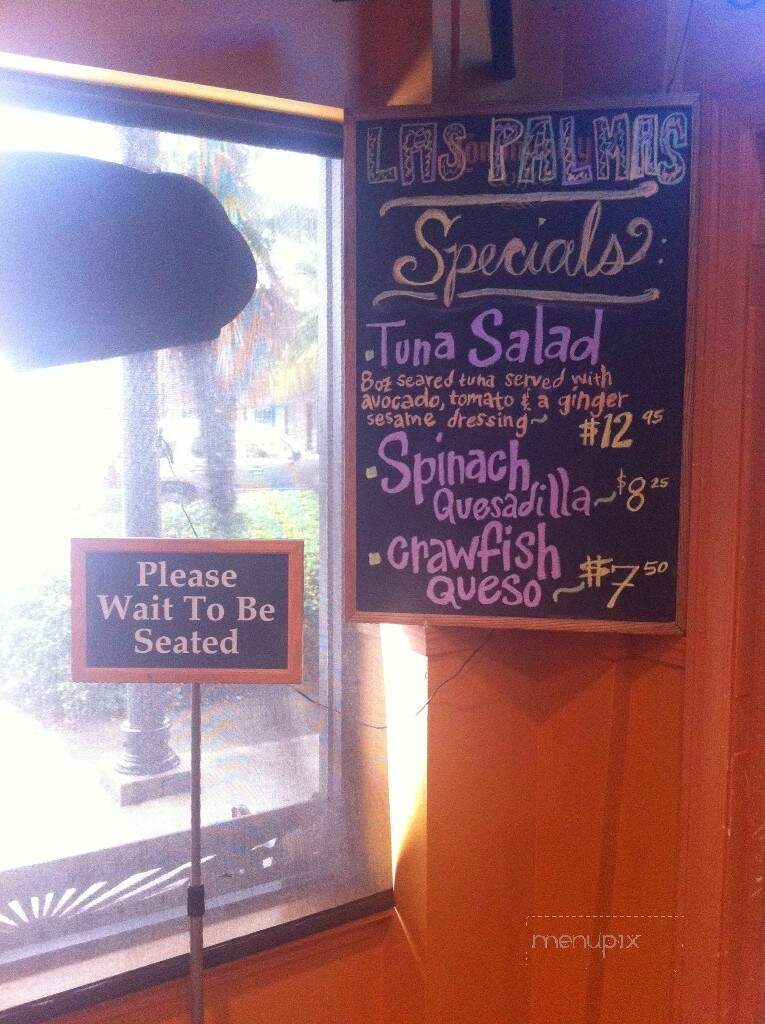 LAS PALMAS
Specials:
Tuna Salad
8oz seared tuna served with
avocado, tomato & a ginger
sesame dressing~ $12 95
Spinach
Quesadilla~ $8 25
Crawfish
Queso ~ $7 50
Please
Wait To Be
Seated
menupix